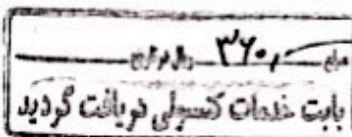 مبلغ ۳۶۰,۰ ریال از آقای
بابت خدمات کنسولی دریافت گردید